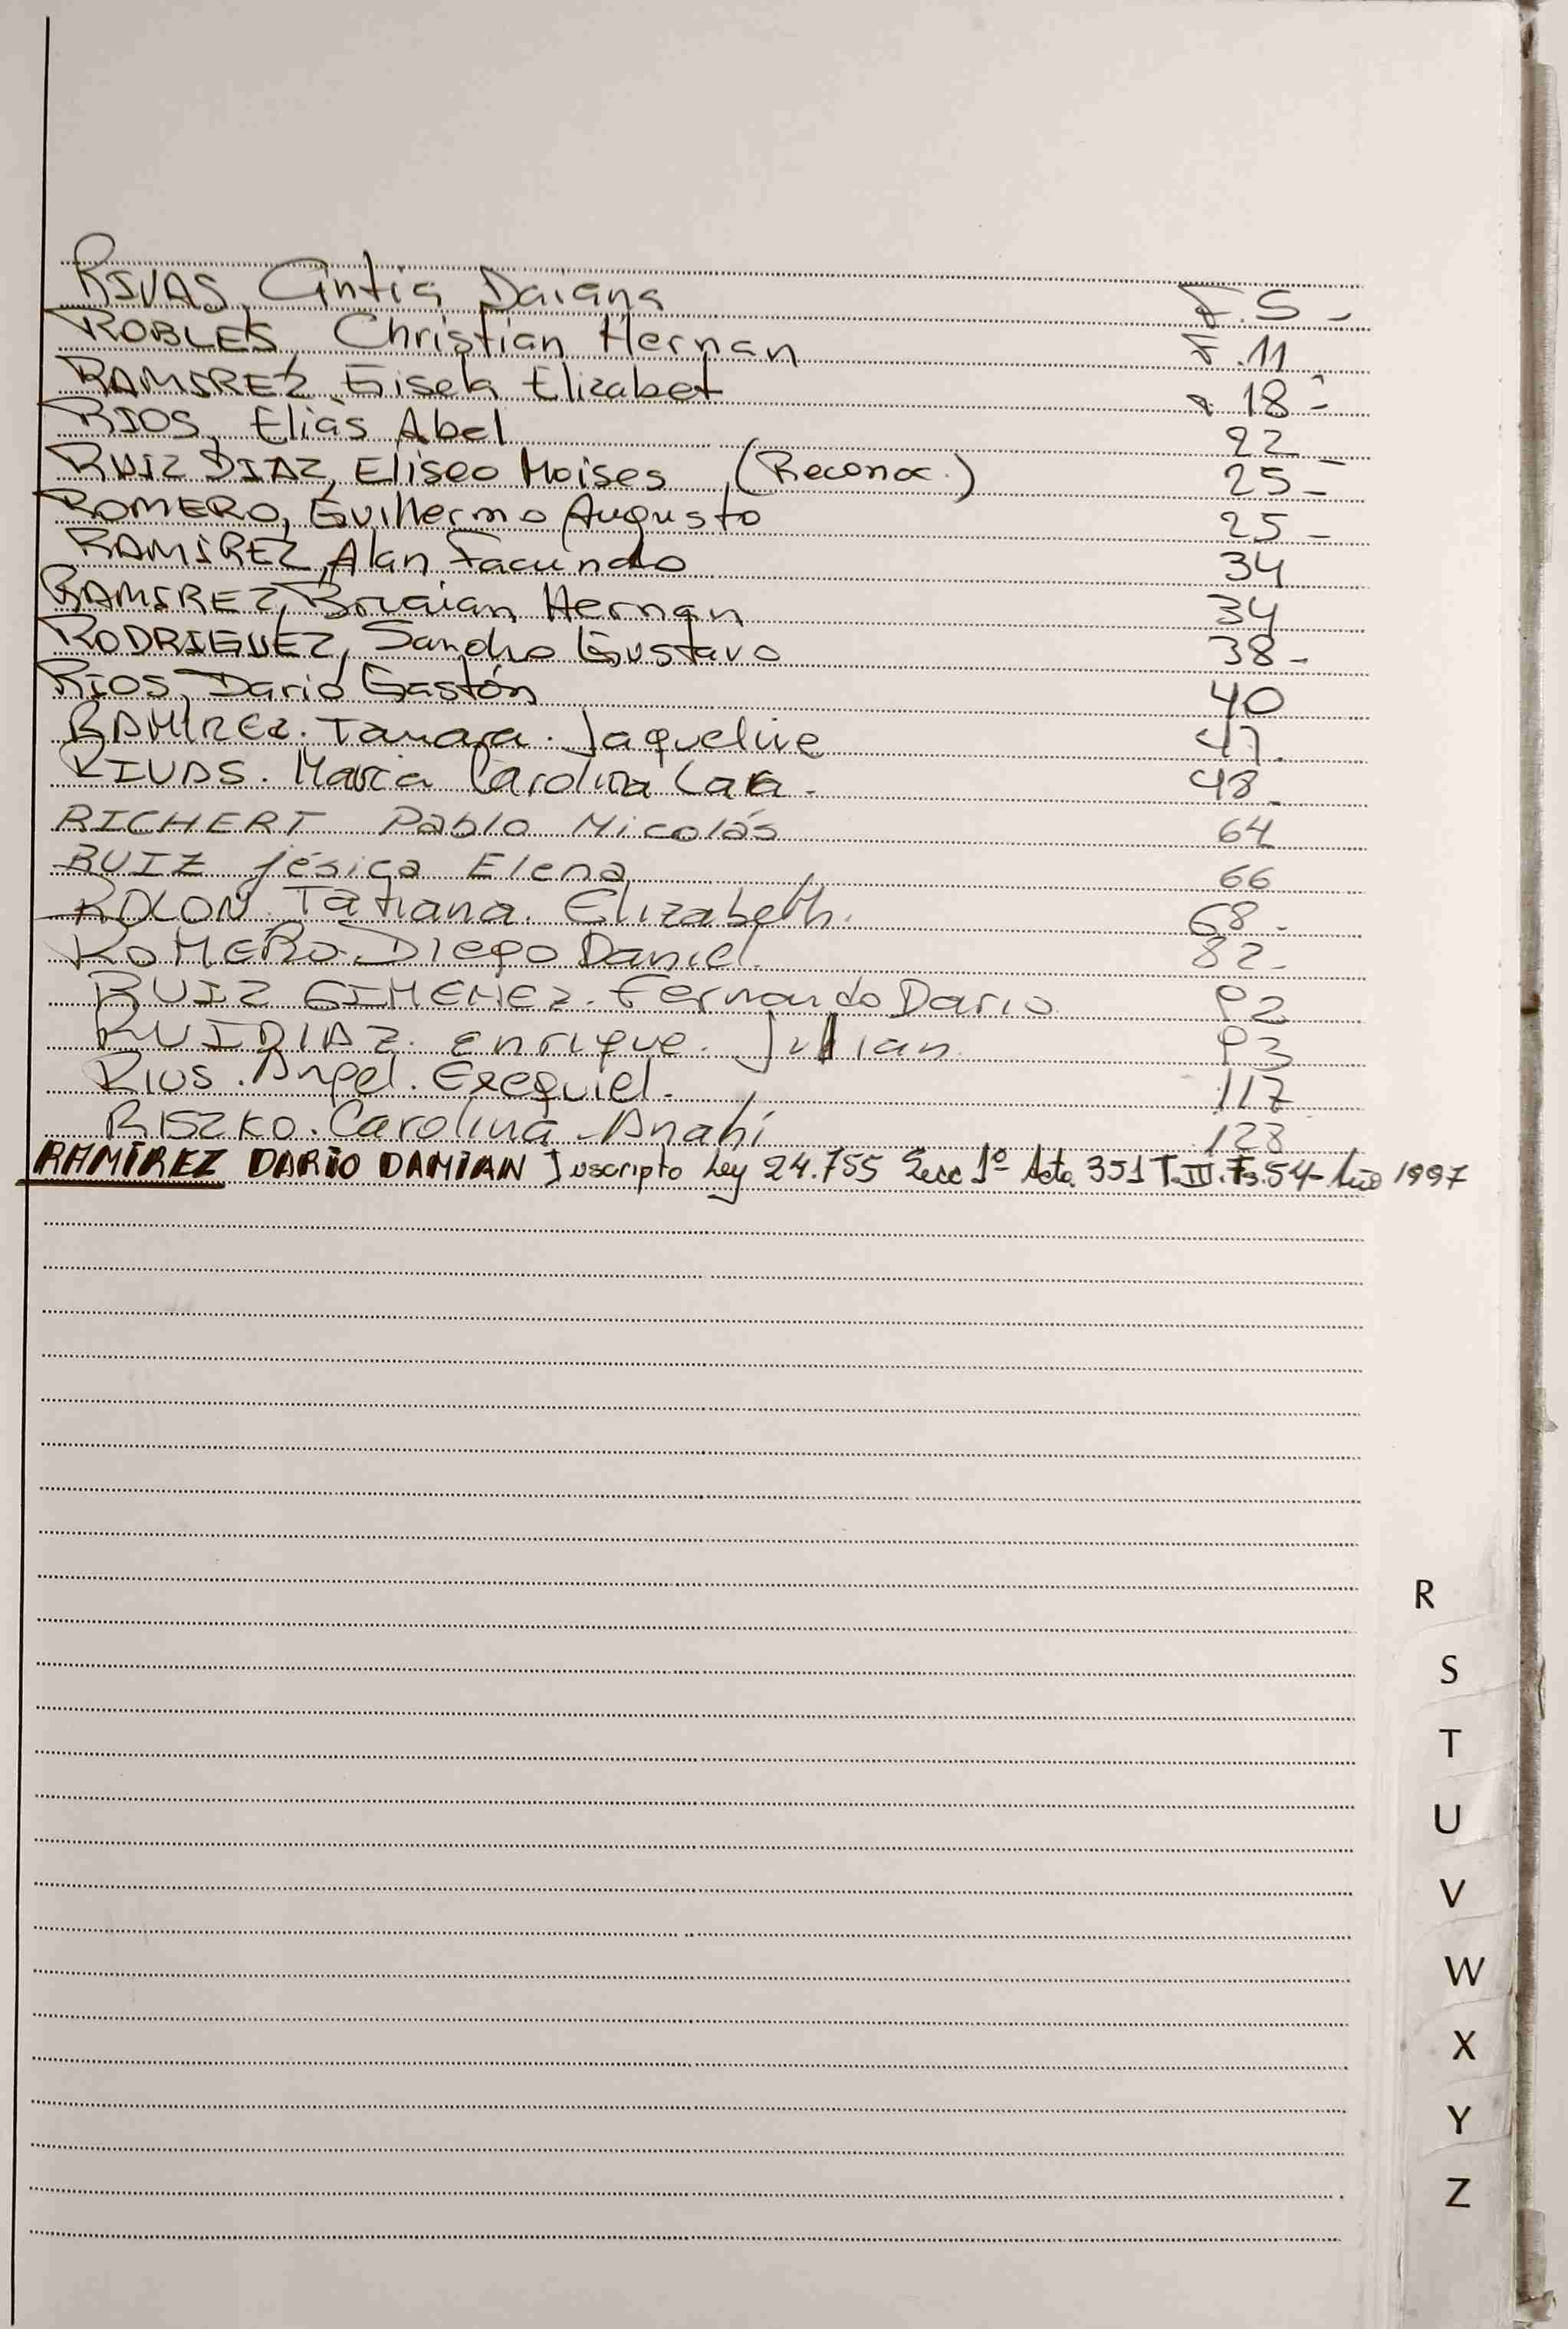 RIVAS, Cintia Daiana F. 5 -
ROBLES, Christian Hernan F. 11
RAMIREZ, Gisela Elizabet " 18 -
RIOS, Elias Abel 22 -
RUIZ DIAZ, Eliseo Moises (Reconoc.) 25 -
ROMERO, Guillermo Augusto 25 -
RAMIREZ, Alan Facundo 34
RAMIREZ, Braian Hernan 34
RODRIGUEZ, Sandro Gustavo 38 -
RIOS, Dario Gastón 40
RAMÍREZ. Tamara. Jaqueline 47.
RIVAS. Maria Carolina Lara - 48 -
RICHERT Pablo Nicolás 64
RUIZ Jésica Elena 66
ROLON. Tatiana. Elizabeth. 68 -
ROMERO. Diego Daniel. 82 -
RUIZ GIMENEZ. Fernando Dario 92
RUIDIAZ. Enrique. Julian. 93
RIOS. Angel. Exequiel. 117
RISZKO. Carolina Anahí 128
RAMÍREZ DARÍO DAMIAN Inscripto Ley 24.755 Secc 1º Acta 351 T.III.Fs.54- Año 1997
R
S
T
U
V
W
X
Y
Z